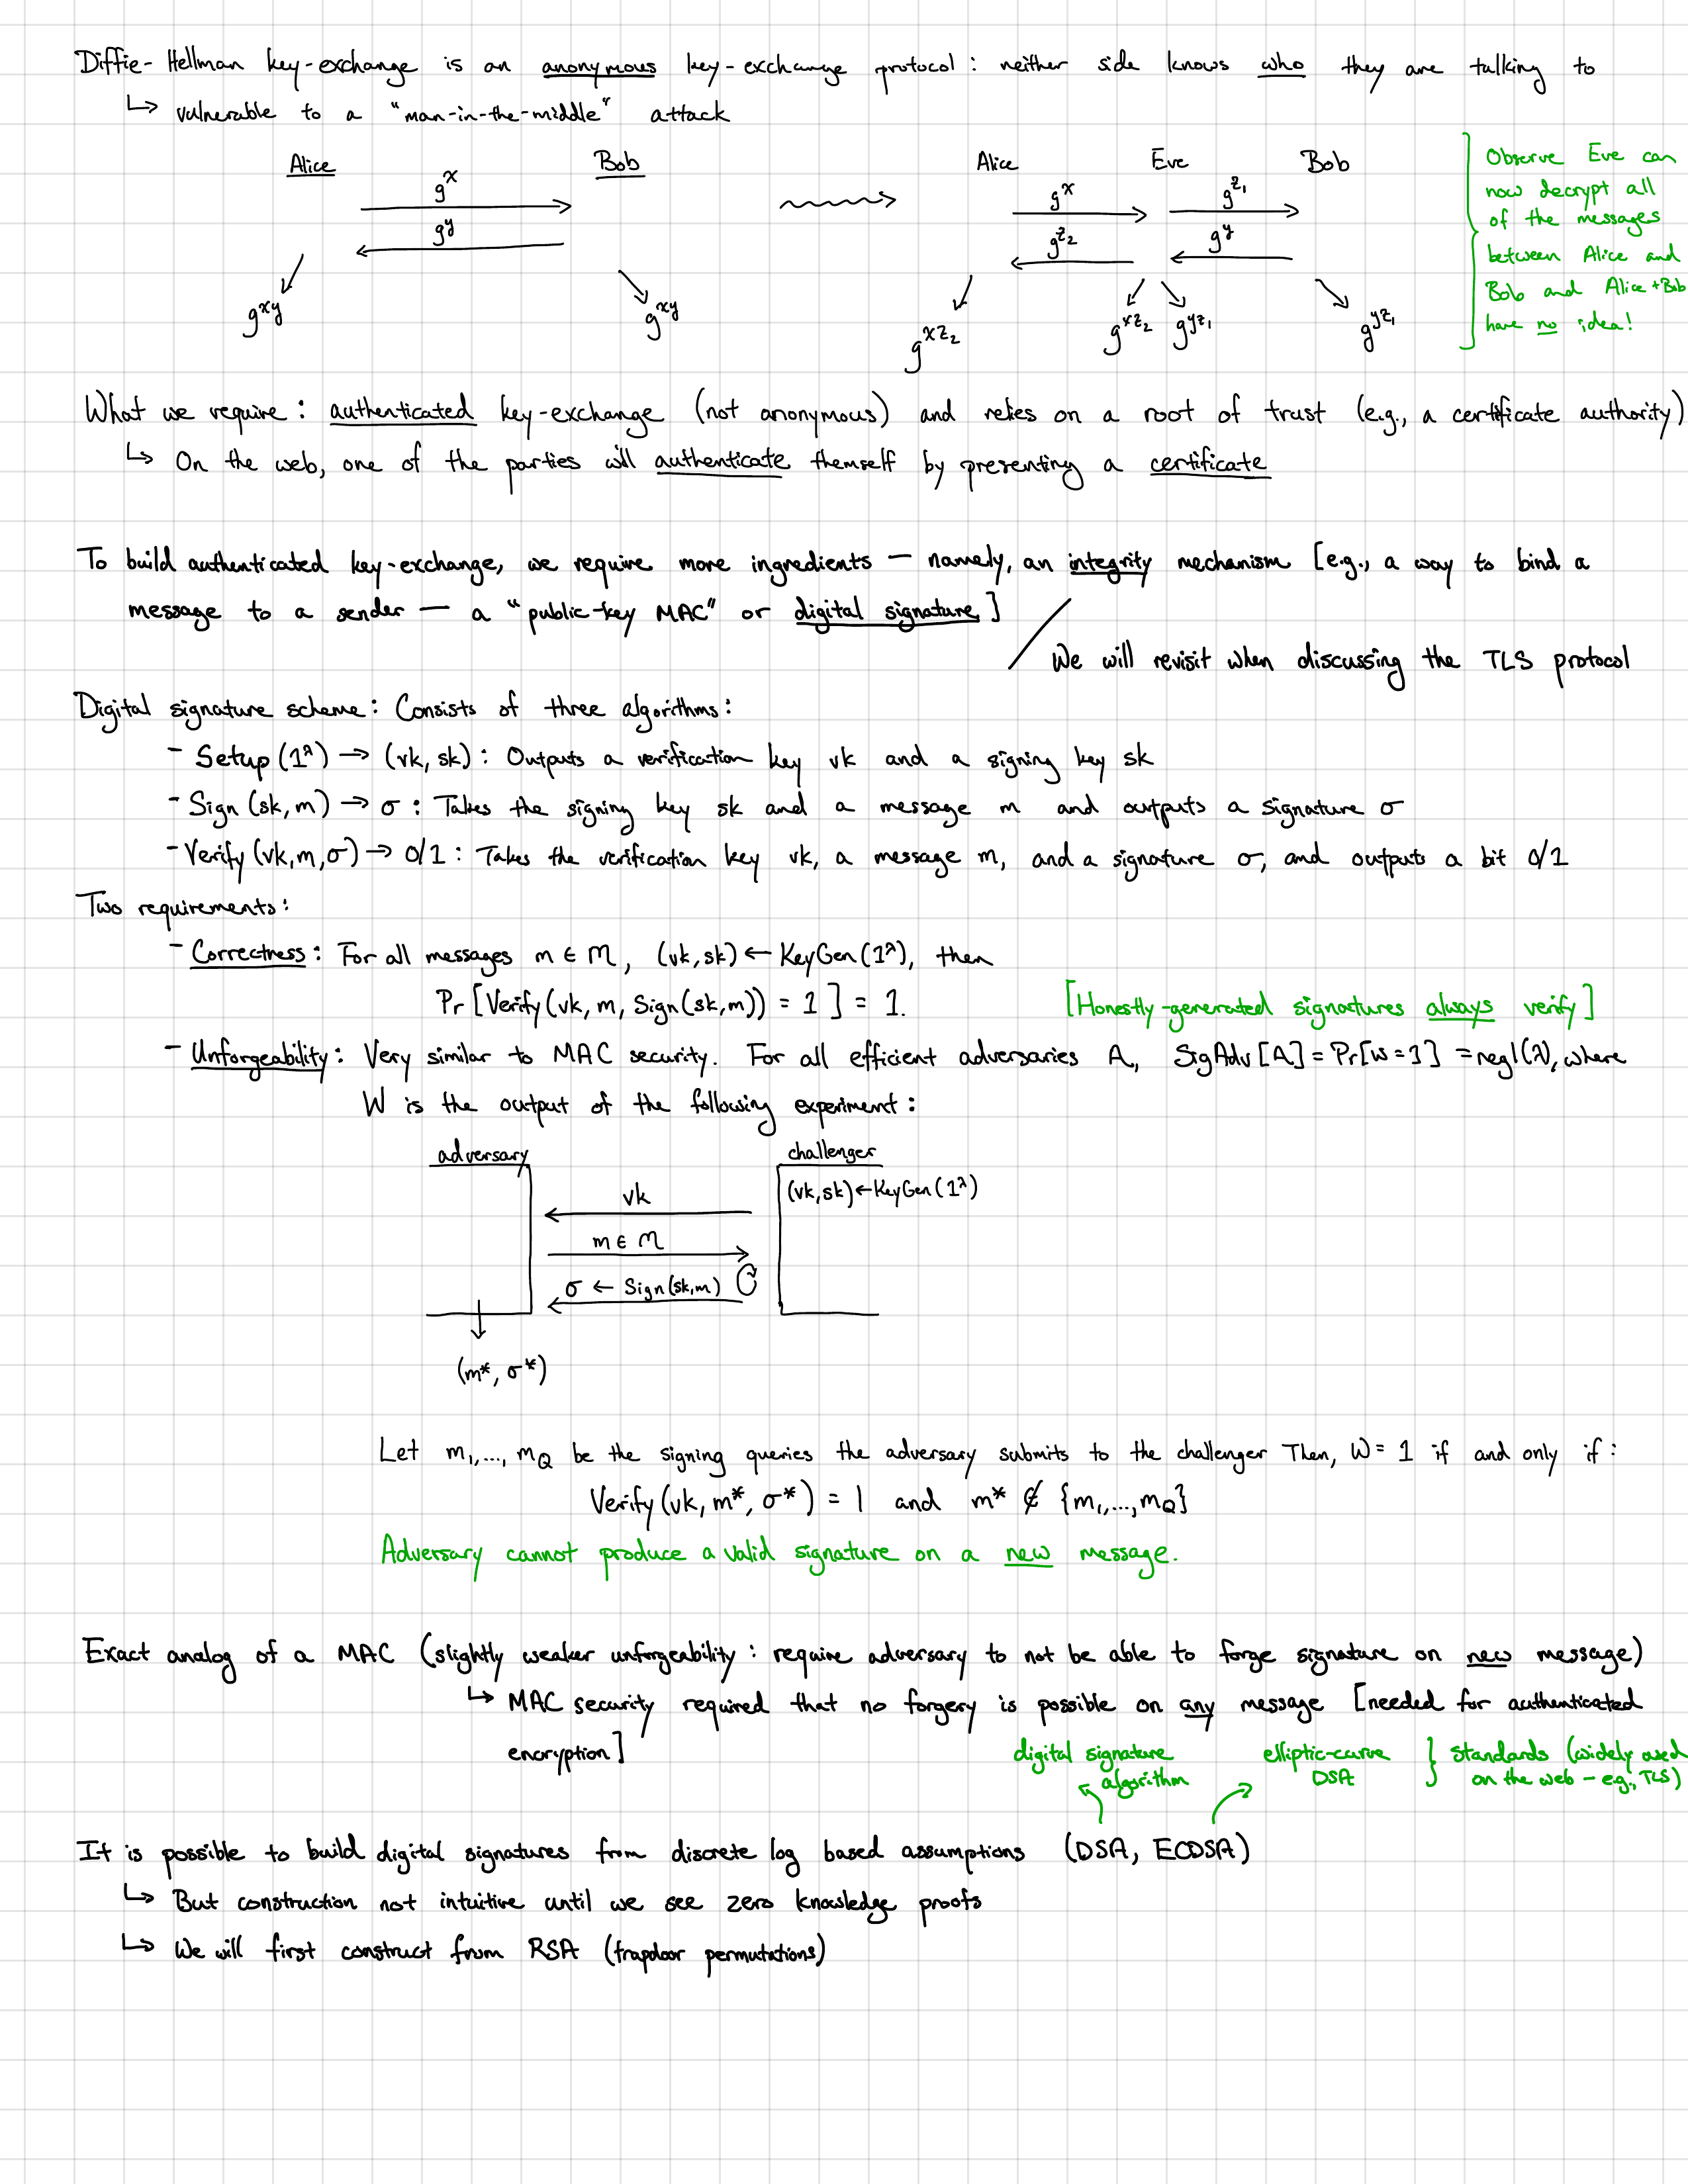 Diffie-Hellman key-exchange is an anonymous key-exchange protocol: neither side knows who they are talking to
↳ vulnerable to a "man-in-the-middle" attack
Alice Bob
g^x
g^y
g^xy g^xy
Alice Eve Bob
g^x g^z₁
g^z₂ g^y
g^xz₂ g^xz₂ g^yz₁ g^yz₁
Observe Eve can
now decrypt all
of the messages
between Alice and
Bob and Alice+Bob
have no idea!
What we require: authenticated key-exchange (not anonymous) and relies on a root of trust (e.g., a certificate authority)
↳ On the web, one of the parties will authenticate themself by presenting a certificate
To build authenticated key-exchange, we require more ingredients — namely, an integrity mechanism [e.g., a way to bind a
message to a sender — a "public-key MAC" or digital signature]
We will revisit when discussing the TLS protocol
Digital signature scheme: Consists of three algorithms:
- Setup(1^λ) → (vk, sk): Outputs a verification key vk and a signing key sk
- Sign(sk, m) → σ: Takes the signing key sk and a message m and outputs a signature σ
- Verify(vk, m, σ) → 0/1: Takes the verification key vk, a message m, and a signature σ, and outputs a bit 0/1
Two requirements:
- Correctness: For all messages m ∈ M, (vk, sk) ← KeyGen(1^λ), then
Pr[Verify(vk, m, Sign(sk, m)) = 1] = 1. [Honestly-generated signatures always verify]
- Unforgeability: Very similar to MAC security. For all efficient adversaries A, SigAdv[A] = Pr[W = 1] = negl(λ), where
W is the output of the following experiment:
adversary challenger
(vk, sk) ← KeyGen(1^λ)
vk
m ∈ M
σ ← Sign(sk, m)
(m*, σ*)
Let m₁, ..., m_Q be the signing queries the adversary submits to the challenger Then, W = 1 if and only if:
Verify(vk, m*, σ*) = 1 and m* ∉ {m₁, ..., m_Q}
Adversary cannot produce a valid signature on a new message.
Exact analog of a MAC (slightly weaker unforgeability: require adversary to not be able to forge signature on new message)
↳ MAC security required that no forgery is possible on any message [needed for authenticated
encryption]
digital signature
algorithm
elliptic-curve
DSA
standards (widely used
on the web - eg., TLS)
It is possible to build digital signatures from discrete log based assumptions (DSA, ECDSA)
↳ But construction not intuitive until we see zero knowledge proofs
↳ We will first construct from RSA (trapdoor permutations)